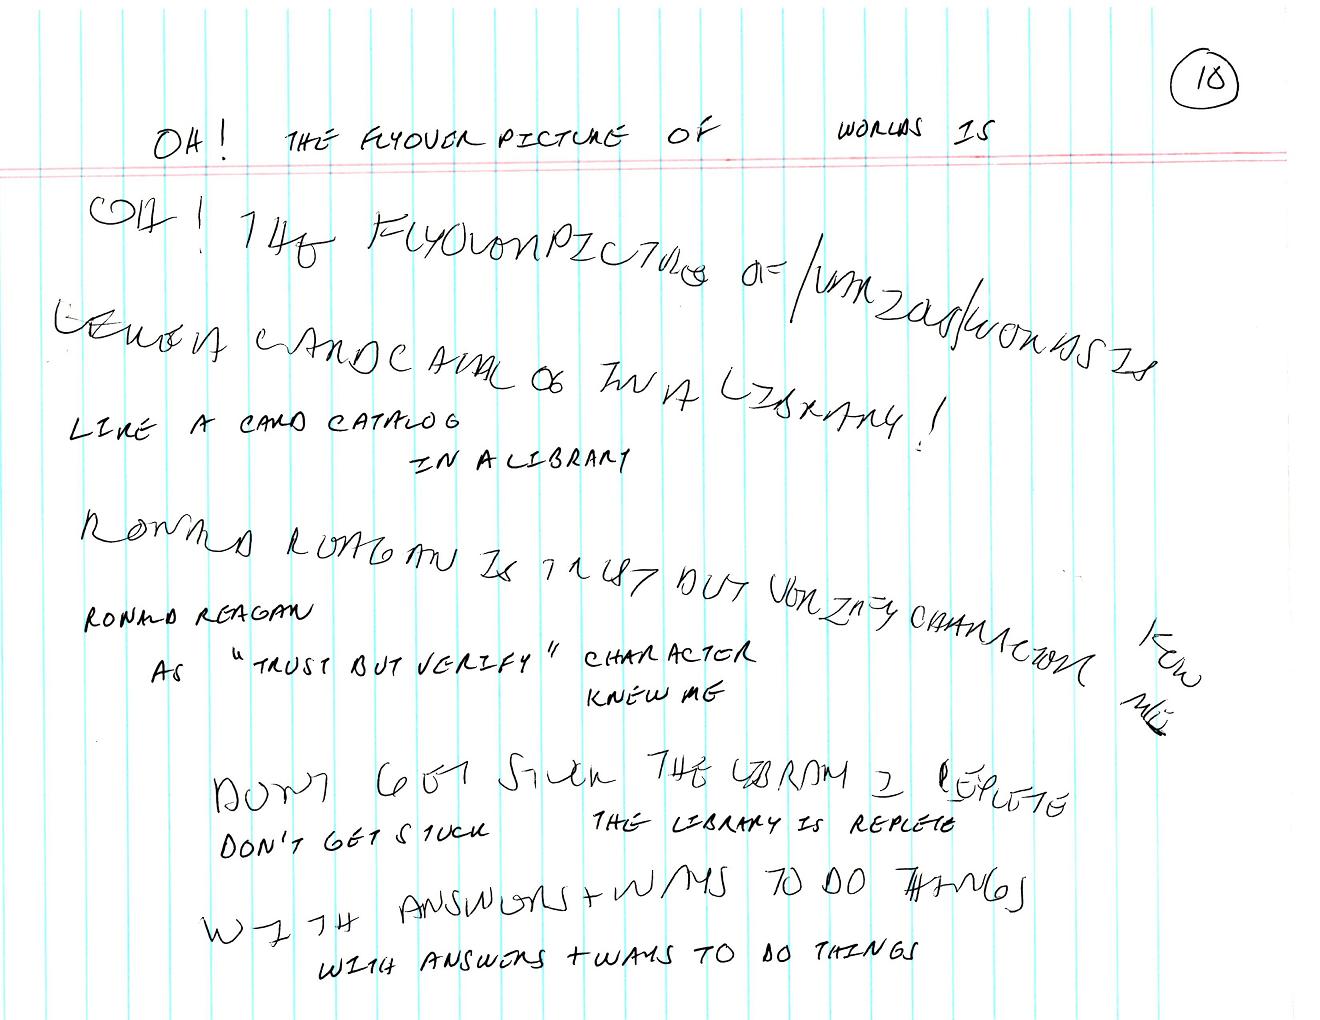 10
OH! THE FLYOVER PICTURE OF WORLDS IS
OH! THE FLYOVER PICTURE OF WORLDS IS
LIKE A CARD CATALOG IN A LIBRARY!
LIKE A CARD CATALOG
IN A LIBRARY
RONALD REAGAN IS TRUST BUT VERIFY CHARACTER
RONALD REAGAN
AS "TRUST BUT VERIFY" CHARACTER
KNEW ME
KEW
ME
DONT GET STUCK THE LIBRARY I REPLETE
DON'T GET STUCK THE LIBRARY IS REPLETE
WITH ANSWERS + WAYS TO DO THINGS
WITH ANSWERS + WAYS TO DO THINGS